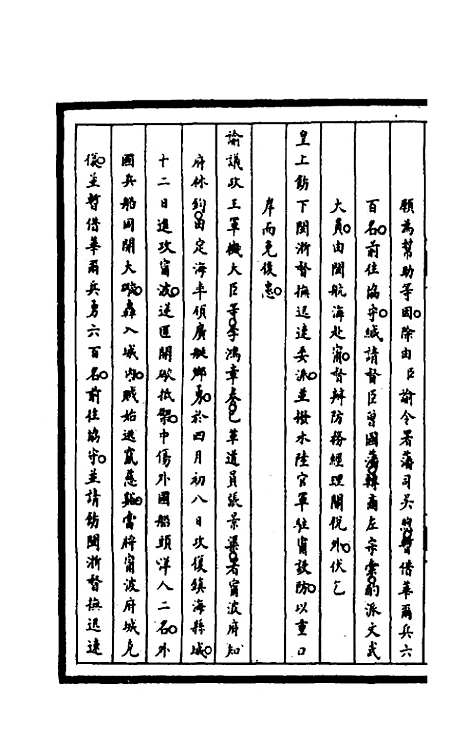 願為幫助等因。除由臣諭令署藩司吳煦暫借華爾兵六
百名。前往協守。緘請督臣曾國藩。轉商左宗棠。酌派文武
大員。由閩航海赴甯。督辦防務經理關稅外。伏乞
皇上飭下閩浙督撫迅速委派。並撥水陸官軍駐甯設防。以重口
岸而免後患。
諭議政王軍機大臣等。李鴻章奏。已革道員張景渠。署甯波府知
府林鈞。由定海率領廣艇鄉勇。於四月初八日攻復鎮海縣城。
十二日進攻甯波。逆匪開礮抵禦。中傷外國船頭洋人二名。外
國兵船同開大礮。轟入城內。賊始逃竄慈谿。當將甯波府城克
復。並暫借華爾兵勇六百名。前往協守。並請飭閩浙督撫迅速